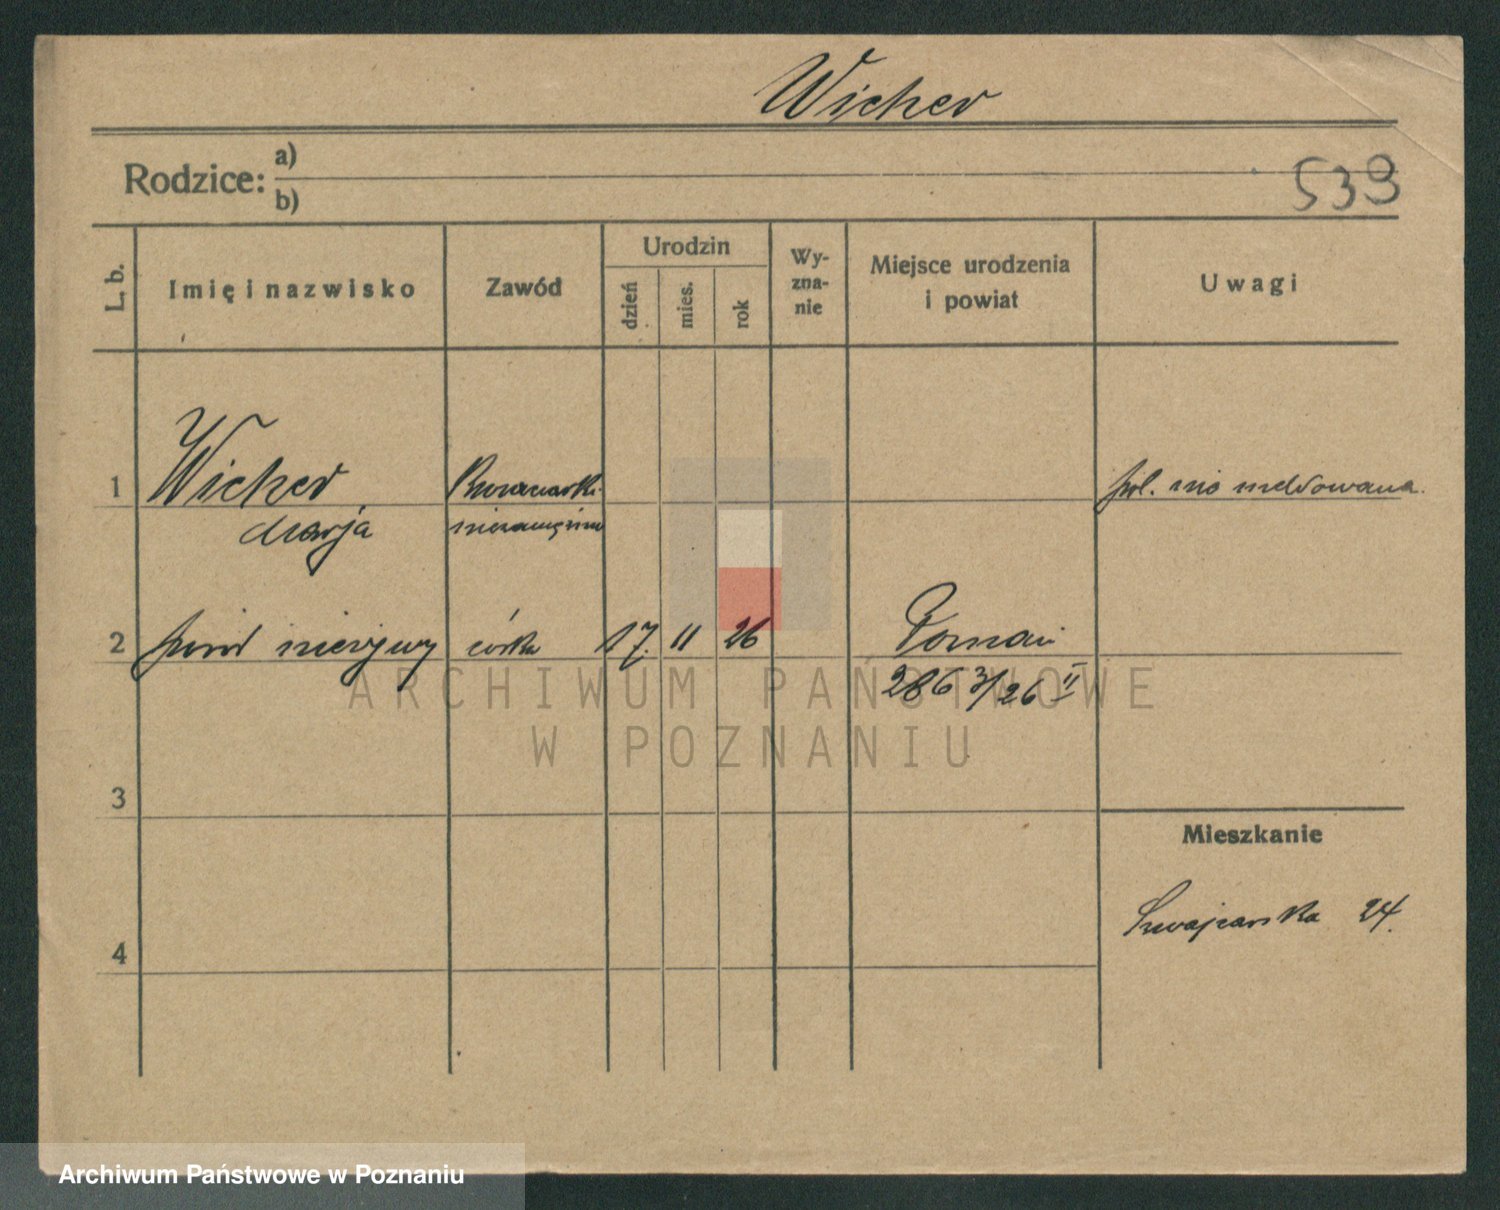 Wicher
Rodzice: a)
b)
539
L. b.
Imię i nazwisko
Zawód
Urodzin
dzień
mies.
rok
Wy-
zna-
nie
Miejsce urodzenia
i powiat
Uwagi
1 Wicher
Marja
niezamężna
pol. nie meldowana.
2 poród nieżywy córka 17. 11 26 Poznań
286 3/26 II
3
4
Mieszkanie
Szwajcarska 24.
ARCHIWUM PAŃSTWOWE
W POZNANIU
Archiwum Państwowe w Poznaniu